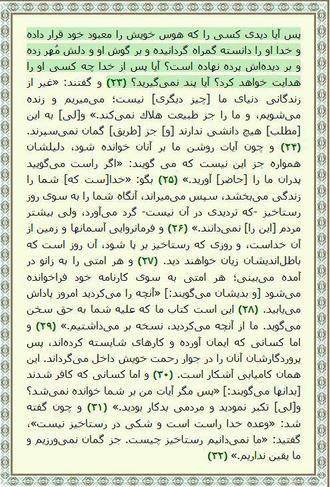 پس آیا دیدی کسی را که هوس خویش را معبود خود قرار داده
و خدا او را دانسته گمراه گردانیده و بر گوش او و دلش مُهر زده
و بر دیده‌اش پرده نهاده است؟ آیا پس از خدا چه کسی او را
هدایت خواهد کرد؟ آیا پند نمی‌گیرید؟ (۲۳) و گفتند: «غیر از
زندگانی دنیای ما [چیز دیگری] نیست؛ می‌میریم و زنده
می‌شویم، و ما را جز طبیعت هلاک نمی‌کند.» و[لی] به این
[مطلب] هیچ دانشی ندارند [و] جز [طریق] گمان نمی‌سپرند.
(۲۴) و چون آیات روشن ما بر آنان خوانده شود، دلیلشان
همواره جز این نیست که می گویند: «اگر راست می‌گویید
پدران ما را [حاضر] آورید.» (۲۵) بگو: «خدا[ست که] شما را
زندگی می‌بخشد، سپس می‌میراند، آنگاه شما را به سوی روز
رستاخیز -که تردیدی در آن نیست- گرد می‌آورد، ولی بیشتر
مردم [این را] نمی‌دانند.» (۲۶) و فرمانروایی آسمانها و زمین از
آن خداست، و روزی که رستاخیز بر پا شود، آن روز است که
باطل‌اندیشان زیان خواهند دید. (۲۷) و هر امتی را به زانو در
آمده می‌بینی؛ هر امتی به سوی کارنامه خود فراخوانده
می‌شود [و بدیشان می‌گویند:] «آنچه را می‌کردید امروز پاداش
می‌یابید. (۲۸) این است کتاب ما که علیه شما به حق سخن
می‌گوید. ما از آنچه می‌کردید، نسخه بر می‌داشتیم.» (۲۹) و
اما کسانی که ایمان آورده و کارهای شایسته کرده‌اند، پس
پروردگارشان آنان را در جوار رحمت خویش داخل می‌گرداند. این
همان کامیابی آشکار است. (۳۰) و اما کسانی که کافر شدند
[بدانها می‌گویند:] «پس مگر آیات من بر شما خوانده نمی‌شد؟
و[لی] تکبر نمودید و مردمی بدکار بودید.» (۳۱) و چون گفته
شد: «وعده خدا راست است و شکی در رستاخیز نیست»،
گفتید: «ما نمی‌دانیم رستاخیز چیست. جز گمان نمی‌ورزیم و
ما یقین نداریم.» (۳۲)